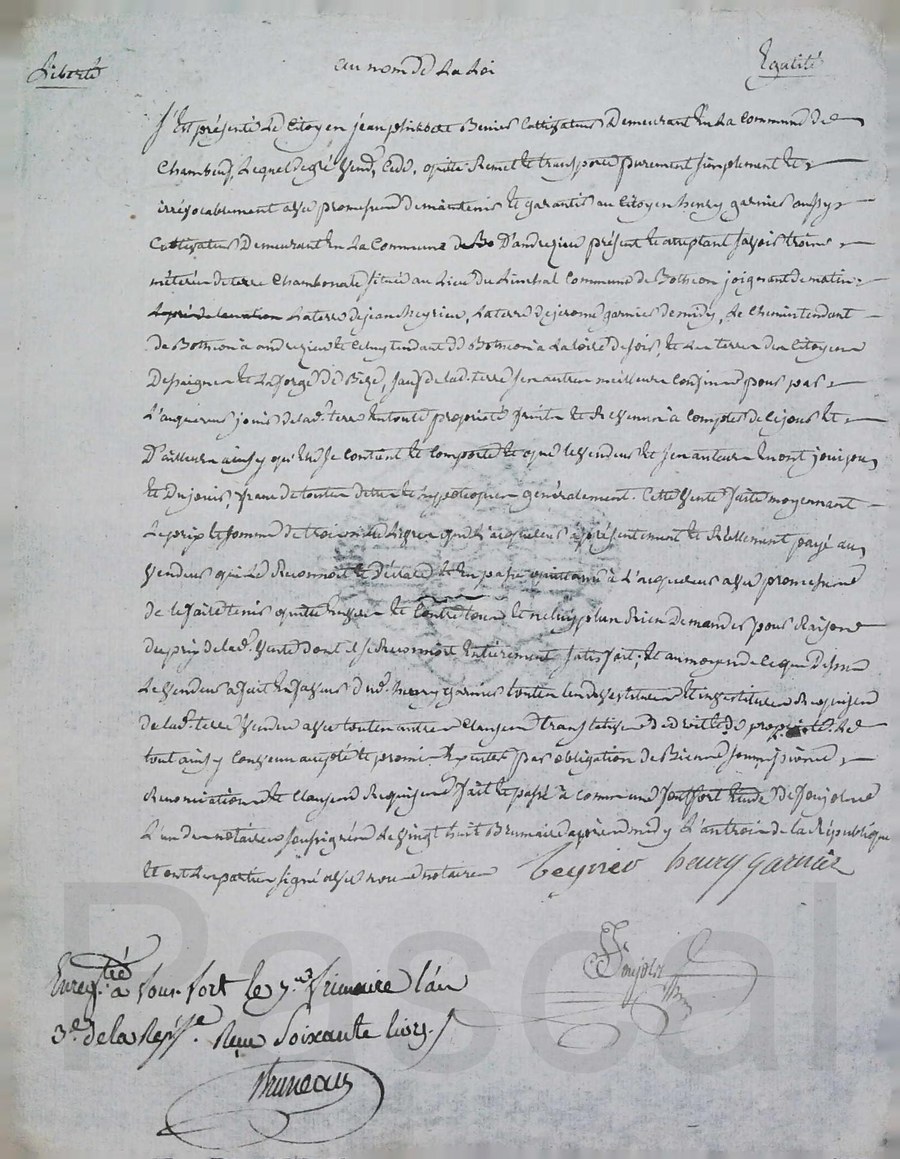 Liberté au nom de La Loi Egalité
S'Est présenté Le Citoyen jean Cultivateur Demeurant En La Commune de
Chambeuf, Lequel de gré vend, Cede, quitte Remet et transporte purement simplement et
irrévocablement avec promesse de maintenir et garantir au Citoyen henry garnier aussy
Cultivateur Demeurant En La Commune de D'andrezieu présent et acceptant savoir trois
méterée de terre Chambonale située au Lieu du Commune de Bothéon joignant de matin
La terre de jean Meyrieu, La terre de jerome garnier de midy, Le Chemin tendant
de Bothéon à andrezieu et Celuy tendant de Bothéon à La Loire de soir, et Les terres des Citoyens
Despaignes et La forge de Bize, sauf de lad. terre ses autres meilleurs Confins pour par
L'acquereur jouir de lad. terre En toute propriété fruits et Revenus à Compter de Ce jour et
D'ailleurs ainsy qu'Elle se Contient et Comporte et que le vendeur et ses auteurs En ont joui jou
et Du jouir, franc de toutes dettes et hypotheques généralement. Cette vente faite moyennant
Le prix et somme de trois mille Livres que L'acquereur a présentement et Réellement payé au
vendeur qui Le Reconnoit et Déclare et En passe quittance à L'acquereur avec promesse
de le faire tenir quitte Envers et Contre tous et ne luy plus Rien Demander pour Raison
du prix de lad. vente dont il se Reconnoit Entièrement satisfait; et au moyen de Ce que Dessus
Le vendeur a fait En faveur dud. henry garnier toutes Les dévestitures et investitures Requises
de lad. terre vendue avec toutes autres Clauses translatives de droit et de propriété. Le
tout ainsy Convenu accepté et promis Executer par obligation de Biens soumissions
Renonciations et Clauses Requises fait et passé à Commune Etude de Poujolas
L'un des notaires soussignés Le vingt huit Brumaire après midy L'an trois de la République
Et ont Les parties signé avec nous notaires Teyrieo henry garnier
Enreg.tré à Fonfort le 7 frimaire l'an
3.e de la Rep.e Reçu Soixante livres
Bruneau
Pascal